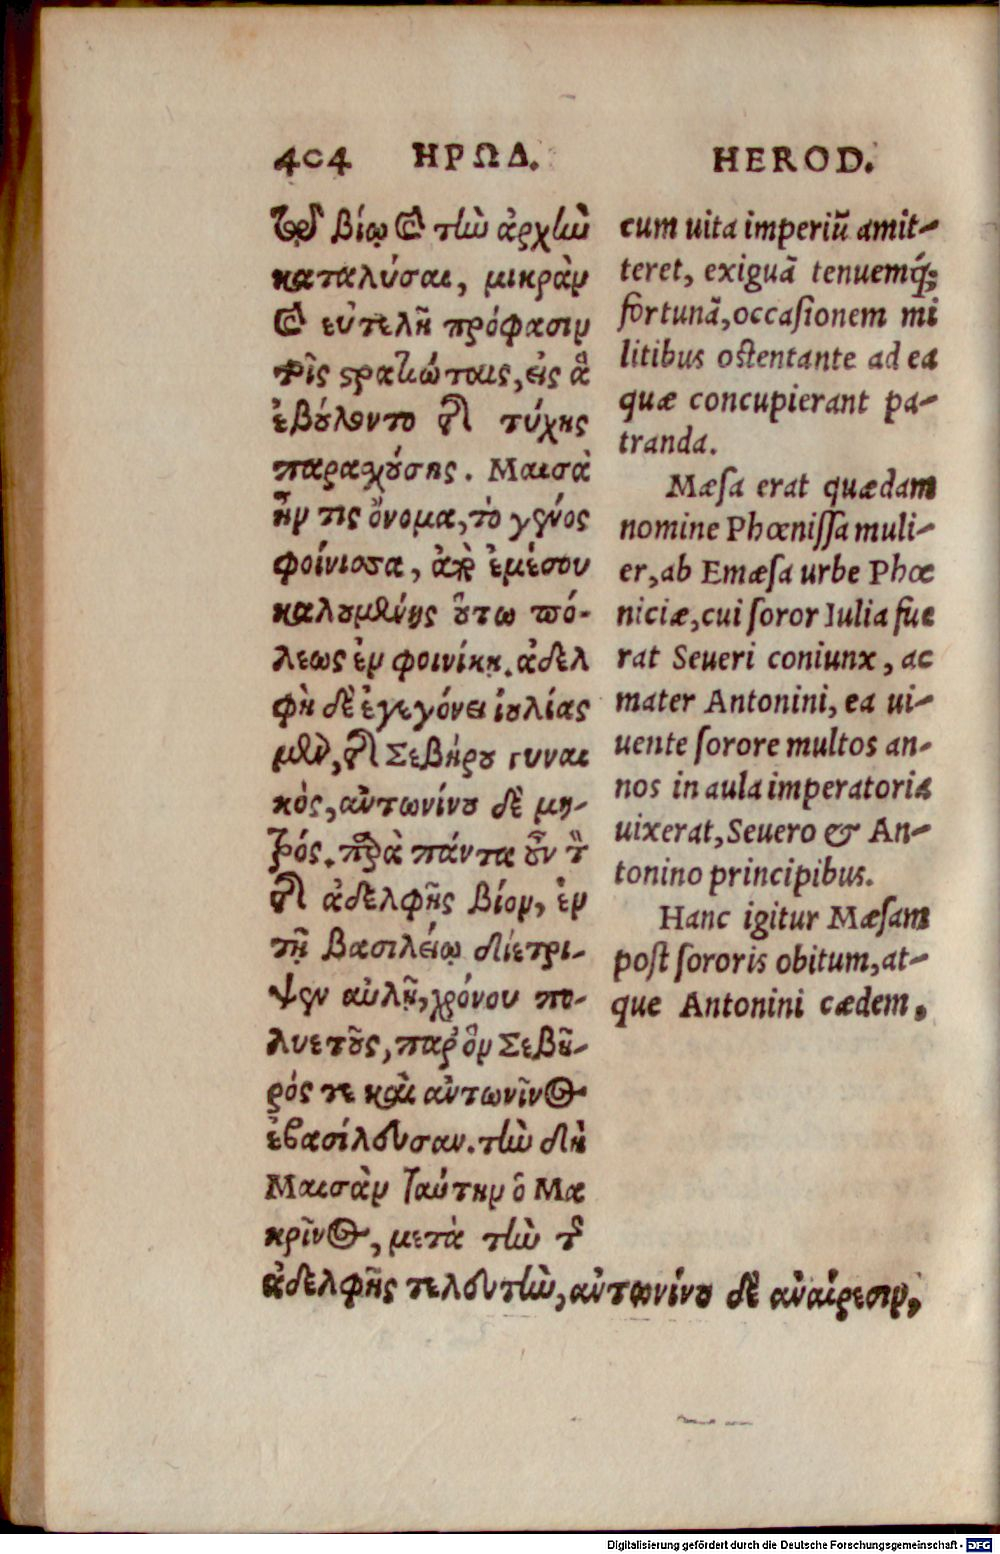 404 ΗΡΩΔ.
τῷ βίῳ καὶ τὴν ἀρχὴν
καταλύσαι, μικρὰν
καὶ εὐτελῆ πρόφασιν
τοῖς στρατιώταις, εἰς ἃ
ἐβούλοντο τῆς τύχης
παραχούσης. Μαισὰ
ἦν τις ὄνομα, τὸ γένος
φοίνισσα, ἀπὸ ἐμέσου
καλουμένης οὕτω πό-
λεως ἐν φοινίκῃ. ἀδελ
φὴ δὲ ἐγεγόνει ἰουλίας
μὲν, τῆς Σεβήρου γυναι
κὸς, αὐτωνίνου δὲ μη-
τρός. παρὰ πάντα οὖν τὸν
τῆς ἀδελφῆς βίον, ἐν
τῇ βασιλείῳ διέτρι-
ψεν αὐλῇ, χρόνου πο-
λυετοῦς, παρ' ὃν Σεβῆ-
ρός τε καὶ αὐτωνῖνος
ἐβασίλευσαν. τὴν δὴ
Μαισὰν ταύτην ὁ Μα
κρῖνος, μετὰ τὴν τῆς
ἀδελφῆς τελευτὴν, αὐτωνίνου δὲ ἀναίρεσιν,
HEROD.
cum uita imperiũ amit-
teret, exiguã tenuemq́;
fortunã, occaſionem mi
litibus oſtentante ad ea
quæ concupierant pa-
tranda.
Mæſa erat quædam
nomine Phœniſſa muli-
er, ab Emæſa urbe Phœ
niciæ, cui ſoror Iulia fue
rat Seueri coniunx, ac
mater Antonini, ea ui-
uente ſorore multos an-
nos in aula imperatoria
uixerat, Seuero & An-
tonino principibus.
Hanc igitur Mæſam
poſt ſororis obitum, at-
que Antonini cædem,
Digitalisierung gefördert durch die Deutsche Forschungsgemeinschaft - DFG